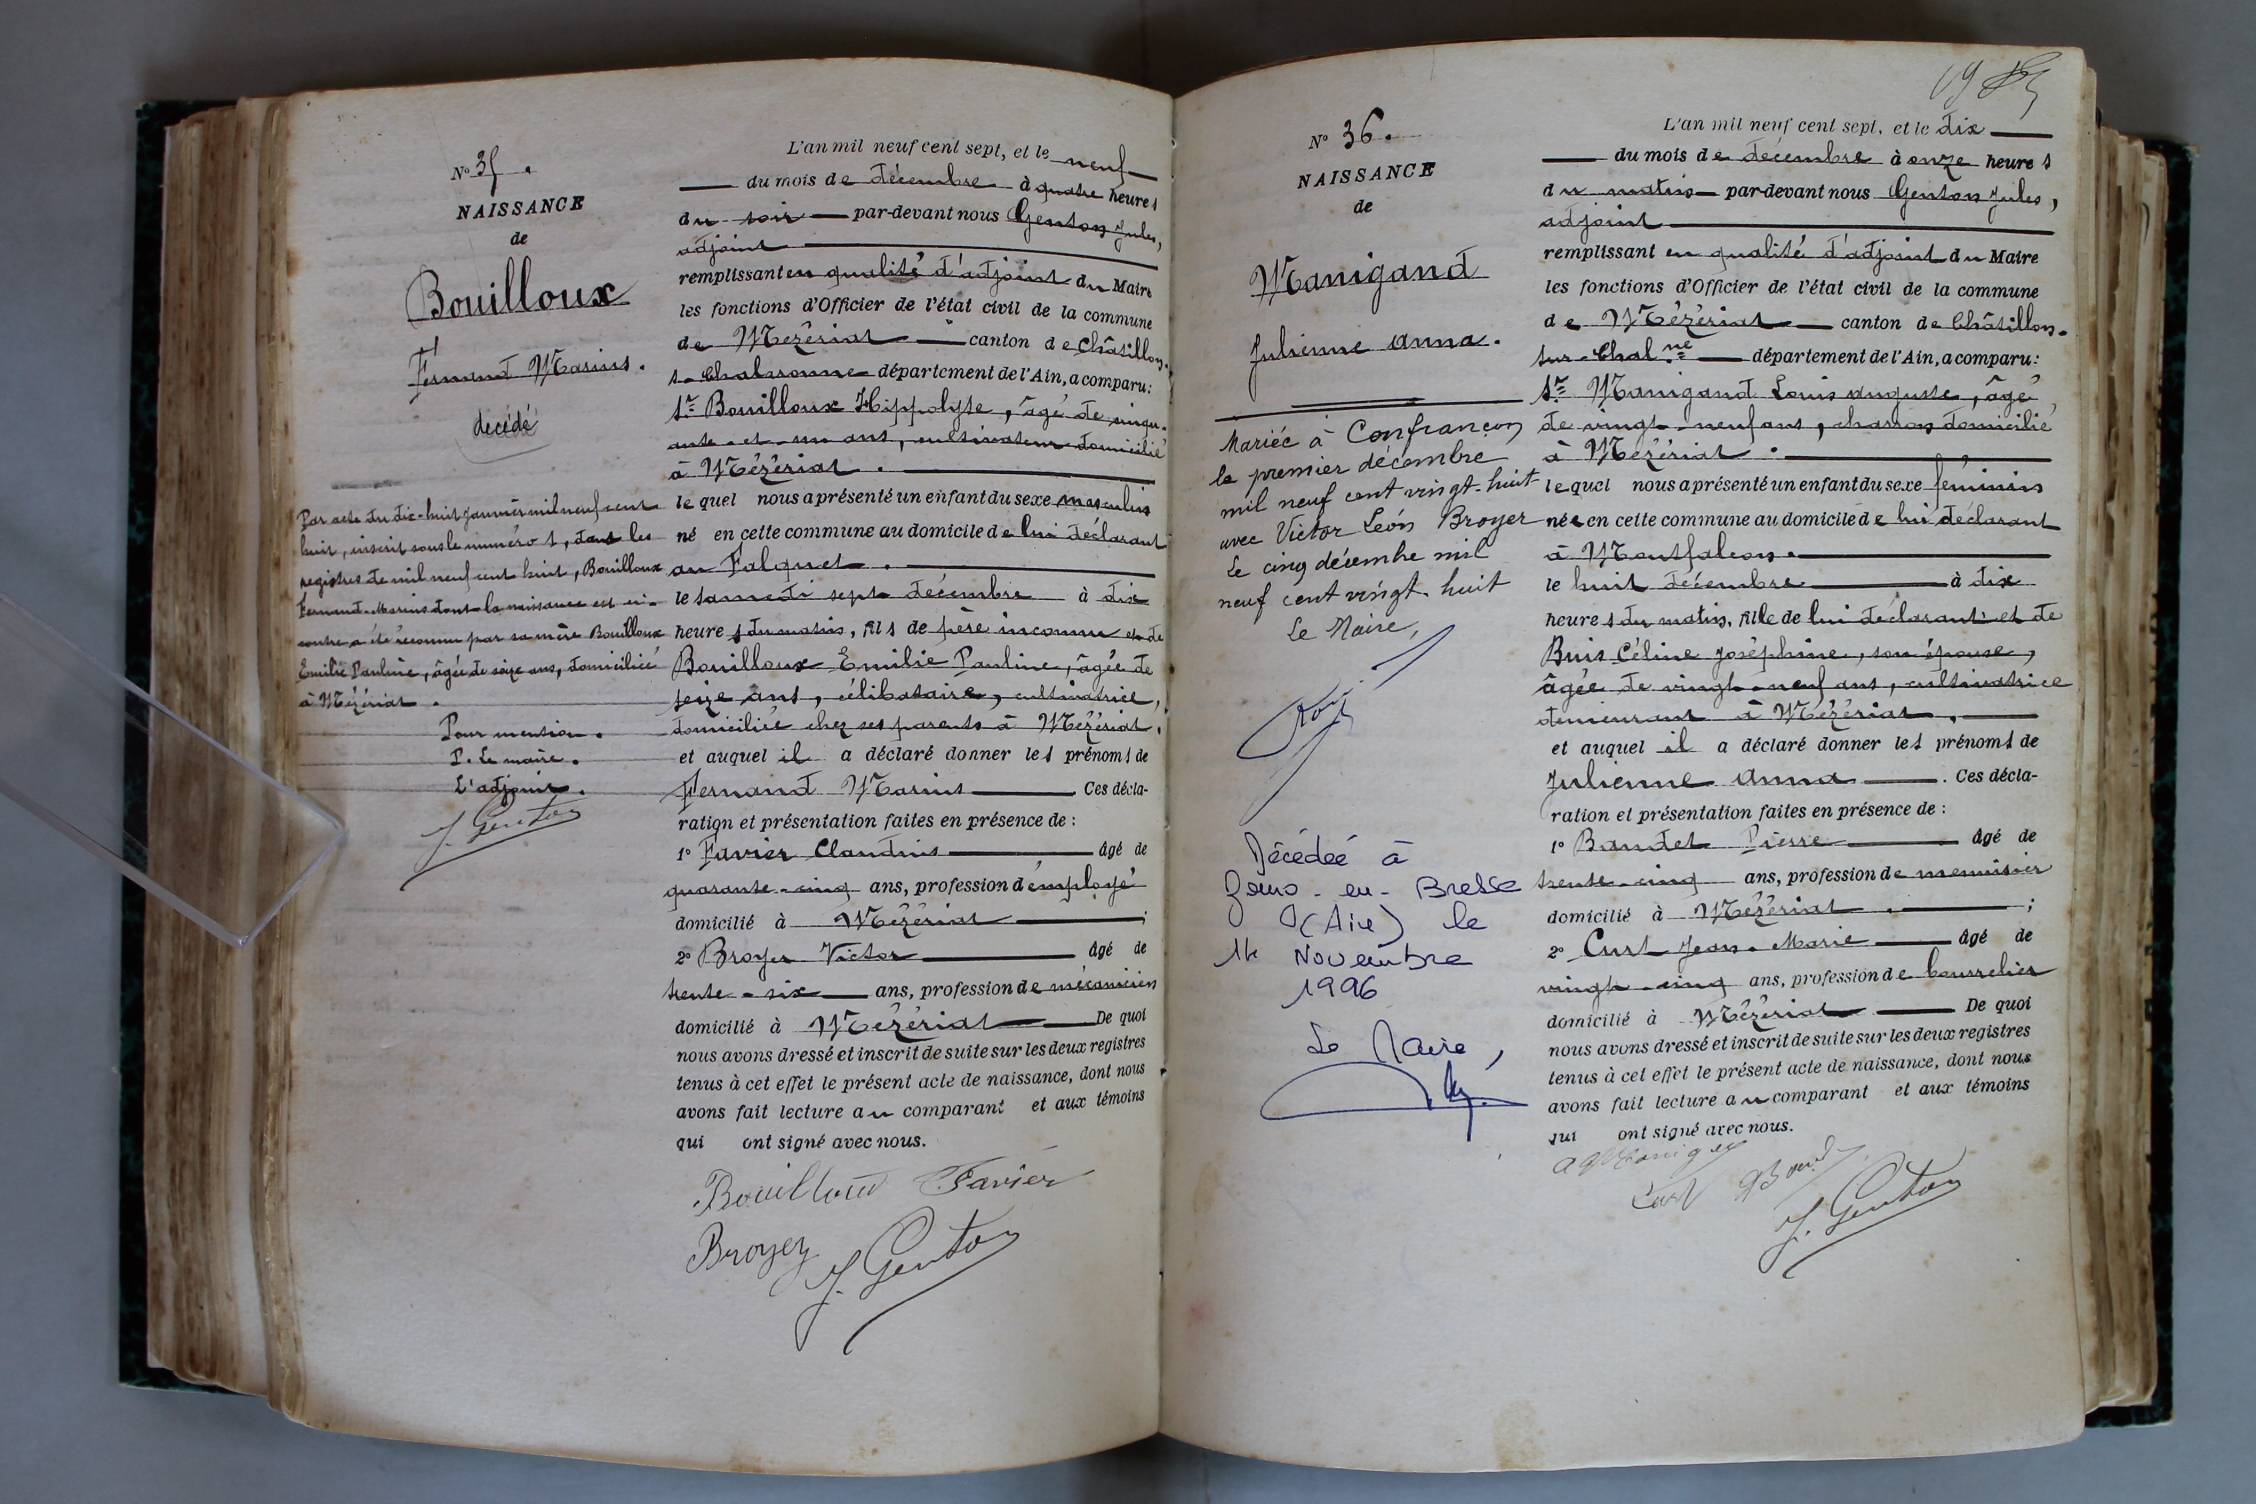 N° 35.
NAISSANCE
de
Bouilloux
Fernand Marius.
décédé
Par acte du dix-huit janvier mil neuf cent
huit, inscrit sous le numéro 1, dans les
registres de mil neuf cent huit, Bouilloux
Fernand-Marius dont la naissance est ci-
contre a été reconnu par sa mère Bouilloux
Emilie Pauline, âgée de seize ans, domiciliée
à Mézériat.
Pour mention.
P. Le maire.
L'adjoint.
J. Genton
L'an mil neuf cent sept, et le neuf
du mois de décembre à quatre heures
du soir par-devant nous Genton Jules,
adjoint
remplissant en qualité d'adjoint du Maire
les fonctions d'Officier de l'état civil de la commune
de Mézériat canton de Châtillon-
s-Chalaronne département de l'Ain, a comparu:
Sr Bouilloux Hippolyte, âgé de cinqu-
ante-et-un ans, cultivateur domicilié
à Mézériat.
lequel nous a présenté un enfant du sexe masculin
né en cette commune au domicile de lui déclarant
au Falquet.
le samedi sept décembre à dix
heures du matin, fils de père inconnu et de
Bouilloux Emilie Pauline, âgée de
seize ans, célibataire, cultivatrice,
domiciliée chez ses parents à Mézériat.
et auquel il a déclaré donner les prénoms de
Fernand Marius Ces décla-
ration et présentation faites en présence de :
1° Favier Claudius âgé de
quarante-cinq ans, profession d'employé
domicilié à Mézériat ;
2° Broyer Victor âgé de
trente-six ans, profession de mécanicien
domicilié à Mézériat De quoi
nous avons dressé et inscrit de suite sur les deux registres
tenus à cet effet le présent acte de naissance, dont nous
avons fait lecture au comparant et aux témoins
qui ont signé avec nous.
Bouilloud Favier
Broyer J. Genton
N° 36.
NAISSANCE
de
Manigand
Julienne Anna.
Mariée à Confrançon
le premier décembre
mil neuf cent vingt-huit
avec Victor Léon Broyer
Le cinq décembre mil
neuf cent vingt-huit
Le Maire,
Décédée à
Bourg-en-Bresse
(Ain) le
14 Novembre
1996
Le Maire,
L'an mil neuf cent sept, et le dix
du mois de décembre à onze heures
du matin par-devant nous Genton Jules,
adjoint
remplissant en qualité d'adjoint du Maire
les fonctions d'Officier de l'état civil de la commune
de Mézériat canton de Châtillon-
sur-Chalne département de l'Ain, a comparu:
Sr Manigand Louis Auguste, âgé
de vingt-neuf ans, charron domicilié
à Mézériat.
lequel nous a présenté un enfant du sexe féminin
née en cette commune au domicile de lui déclarant
à Montfalcon.
le huit décembre à dix
heures du matin, fille de lui déclarant et de
Buis Céline Joséphine, son épouse,
âgée de vingt-neuf ans, cultivatrice
demeurant à Mézériat.
et auquel il a déclaré donner les prénoms de
Julienne Anna. Ces décla-
ration et présentation faites en présence de :
1° Baudet Pierre âgé de
trente-cinq ans, profession de menuisier
domicilié à Mézériat. ;
2° Curt Jean-Marie âgé de
vingt-cinq ans, profession de bourrelier
domicilié à Mézériat De quoi
nous avons dressé et inscrit de suite sur les deux registres
tenus à cet effet le présent acte de naissance, dont nous
avons fait lecture au comparant et aux témoins
qui ont signé avec nous.
Curt
J. Genton